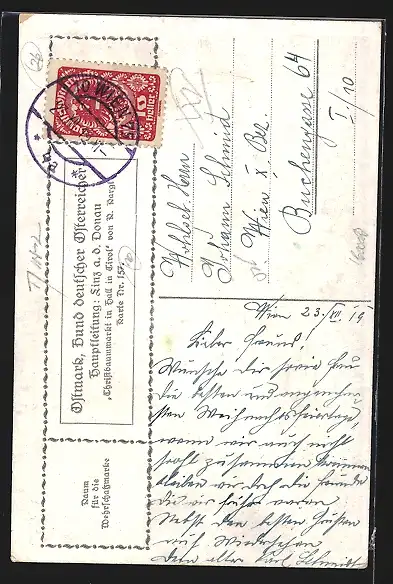 Ostmark, Bund deutscher Österreicher
Hauptleitung: Linz a. d. Donau
„Christbaummarkt in Hall in Tirol“ von R. Nargl
Karte Nr. 157.
Raum
für die
Wehrschatzmarke
WIEN
Heller
Wohlgeb. Herrn
Johann Schmid
Wien X. Bez
Buchengasse 64
I/10
Wien 23./XII. 19
Lieber Freund!
Wünsche dir sowie Frau
die besten und angenehm-
sten Weihnachtsfeiertage,
wenn wir auch nicht
so oft zusammen kommen
bleiben wir doch die Freunde
die wir früher waren
Nebst den besten Grüßen
auf Wiedersehen
Dein alter Karl Schmidt